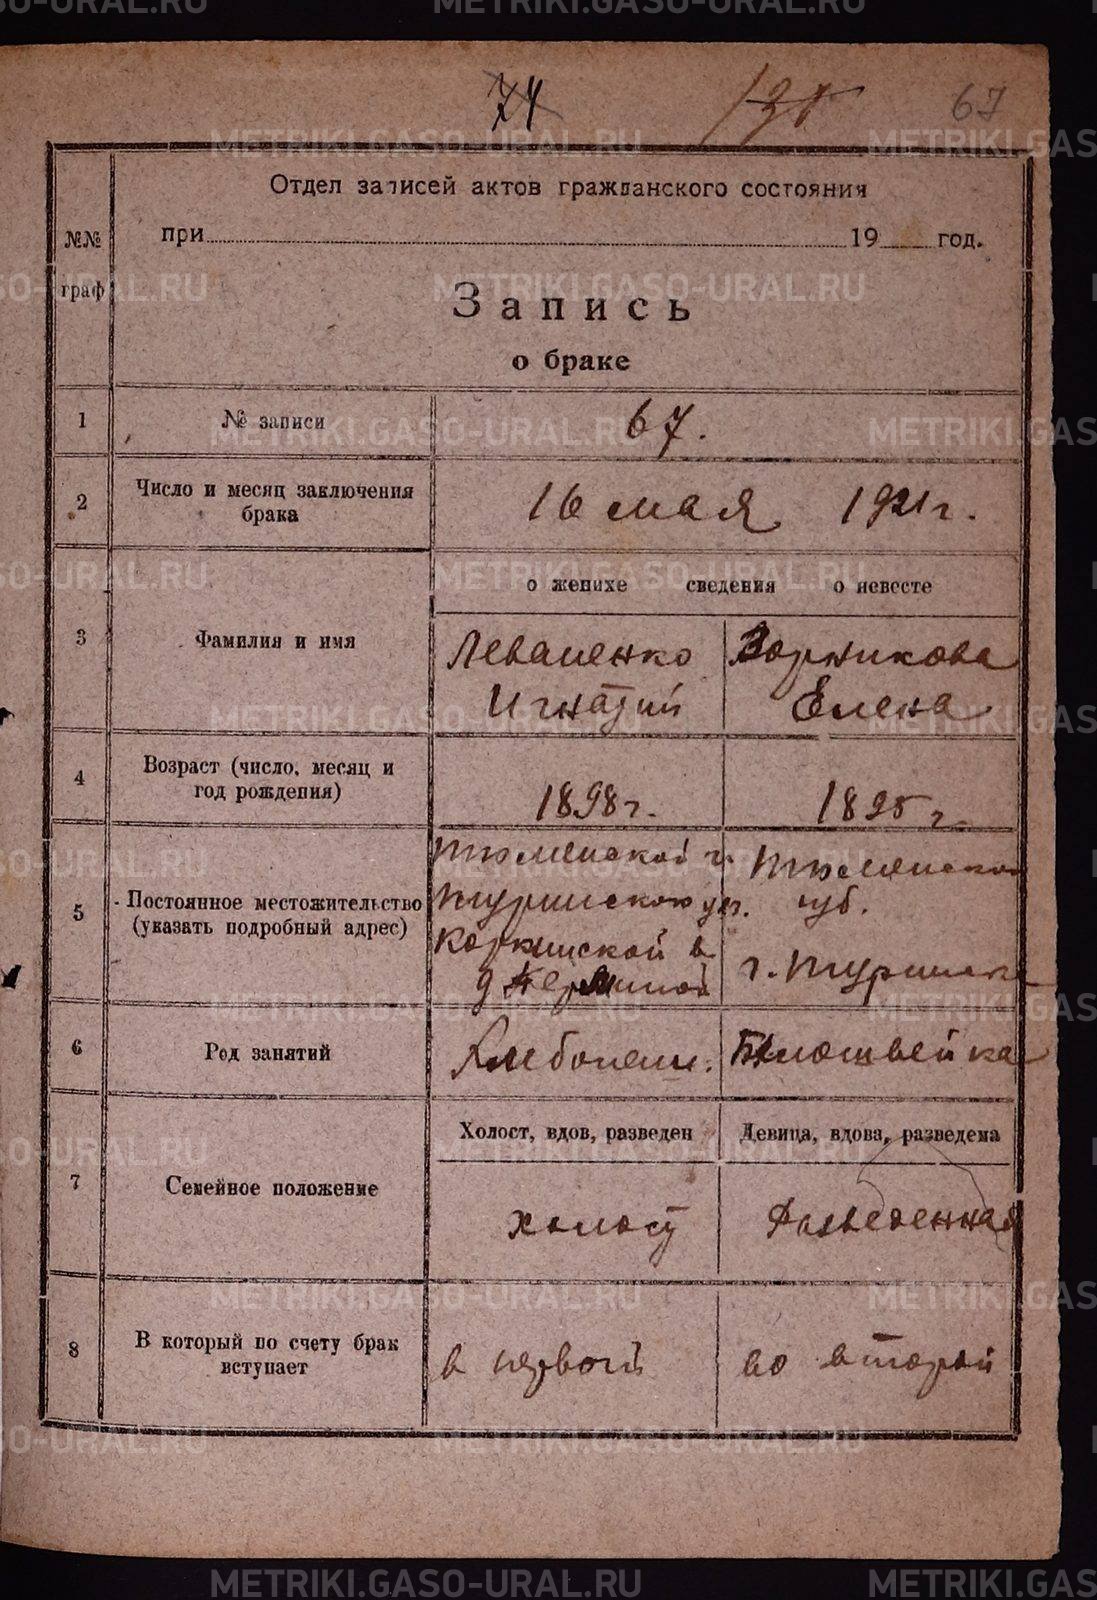 74 67
Отдел записей актов гражданского состояния
при 19 год.
№№
граф
Запись
о браке
1 № записи 67.
2 Число и месяц заключения
брака
16 мая 1921 г.
о женихе сведения о невесте
3 Фамилия и имя
Леваненко
Игнатий
Елена
4 Возраст (число, месяц и
год рождения)
1898 г. 1895 г.
5 Постоянное местожительство
(указать подробный адрес)
Тюменской г.
Туринского у.
Коркинской в.
д.
Тюменской
губ.
г. Туринск
6 Род занятий
Хлебопаш. Белошвейка
Холост, вдов, разведен Девица, вдова, разведена
7 Семейное положение
холост Разведенная
8 В который по счету брак
вступает
в первой во второй
METRIKI.GASO-URAL.RU